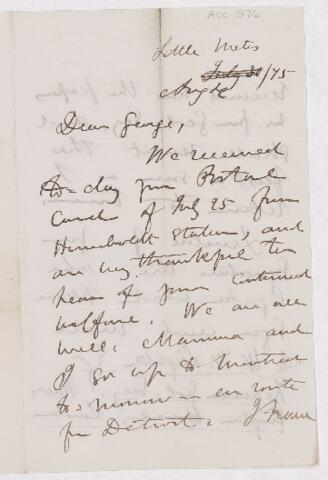 ACC 576
Little Metis
July 30/75
Aug 4
Dear George,
We received
to-day your Postal
Card of July 25 from
Humboldt Station, and
are very thankful to
hear of your continued
welfare. We are all
well: Mamma and
I go up to Montreal
to-morrow en route
for Detroit.